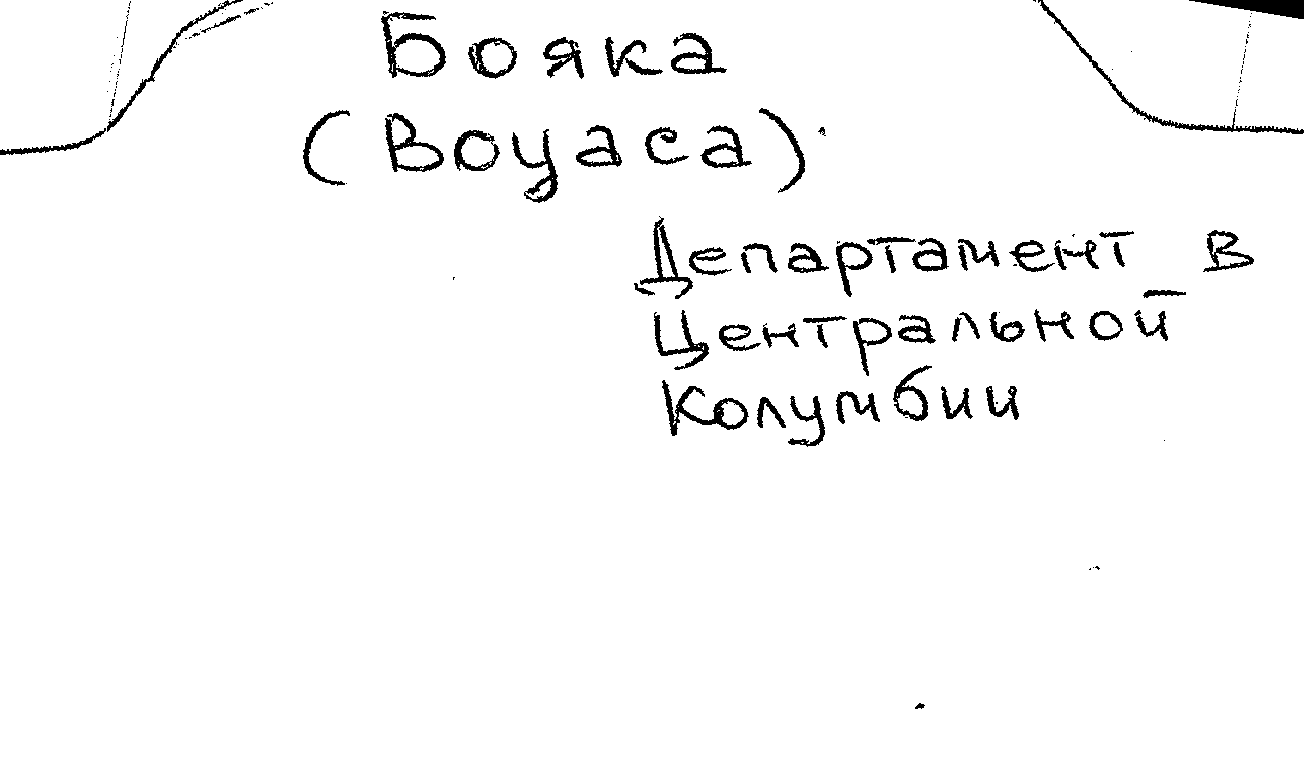 Бояка
(Boyaca).
Департамент в
Центральной
Колумбии